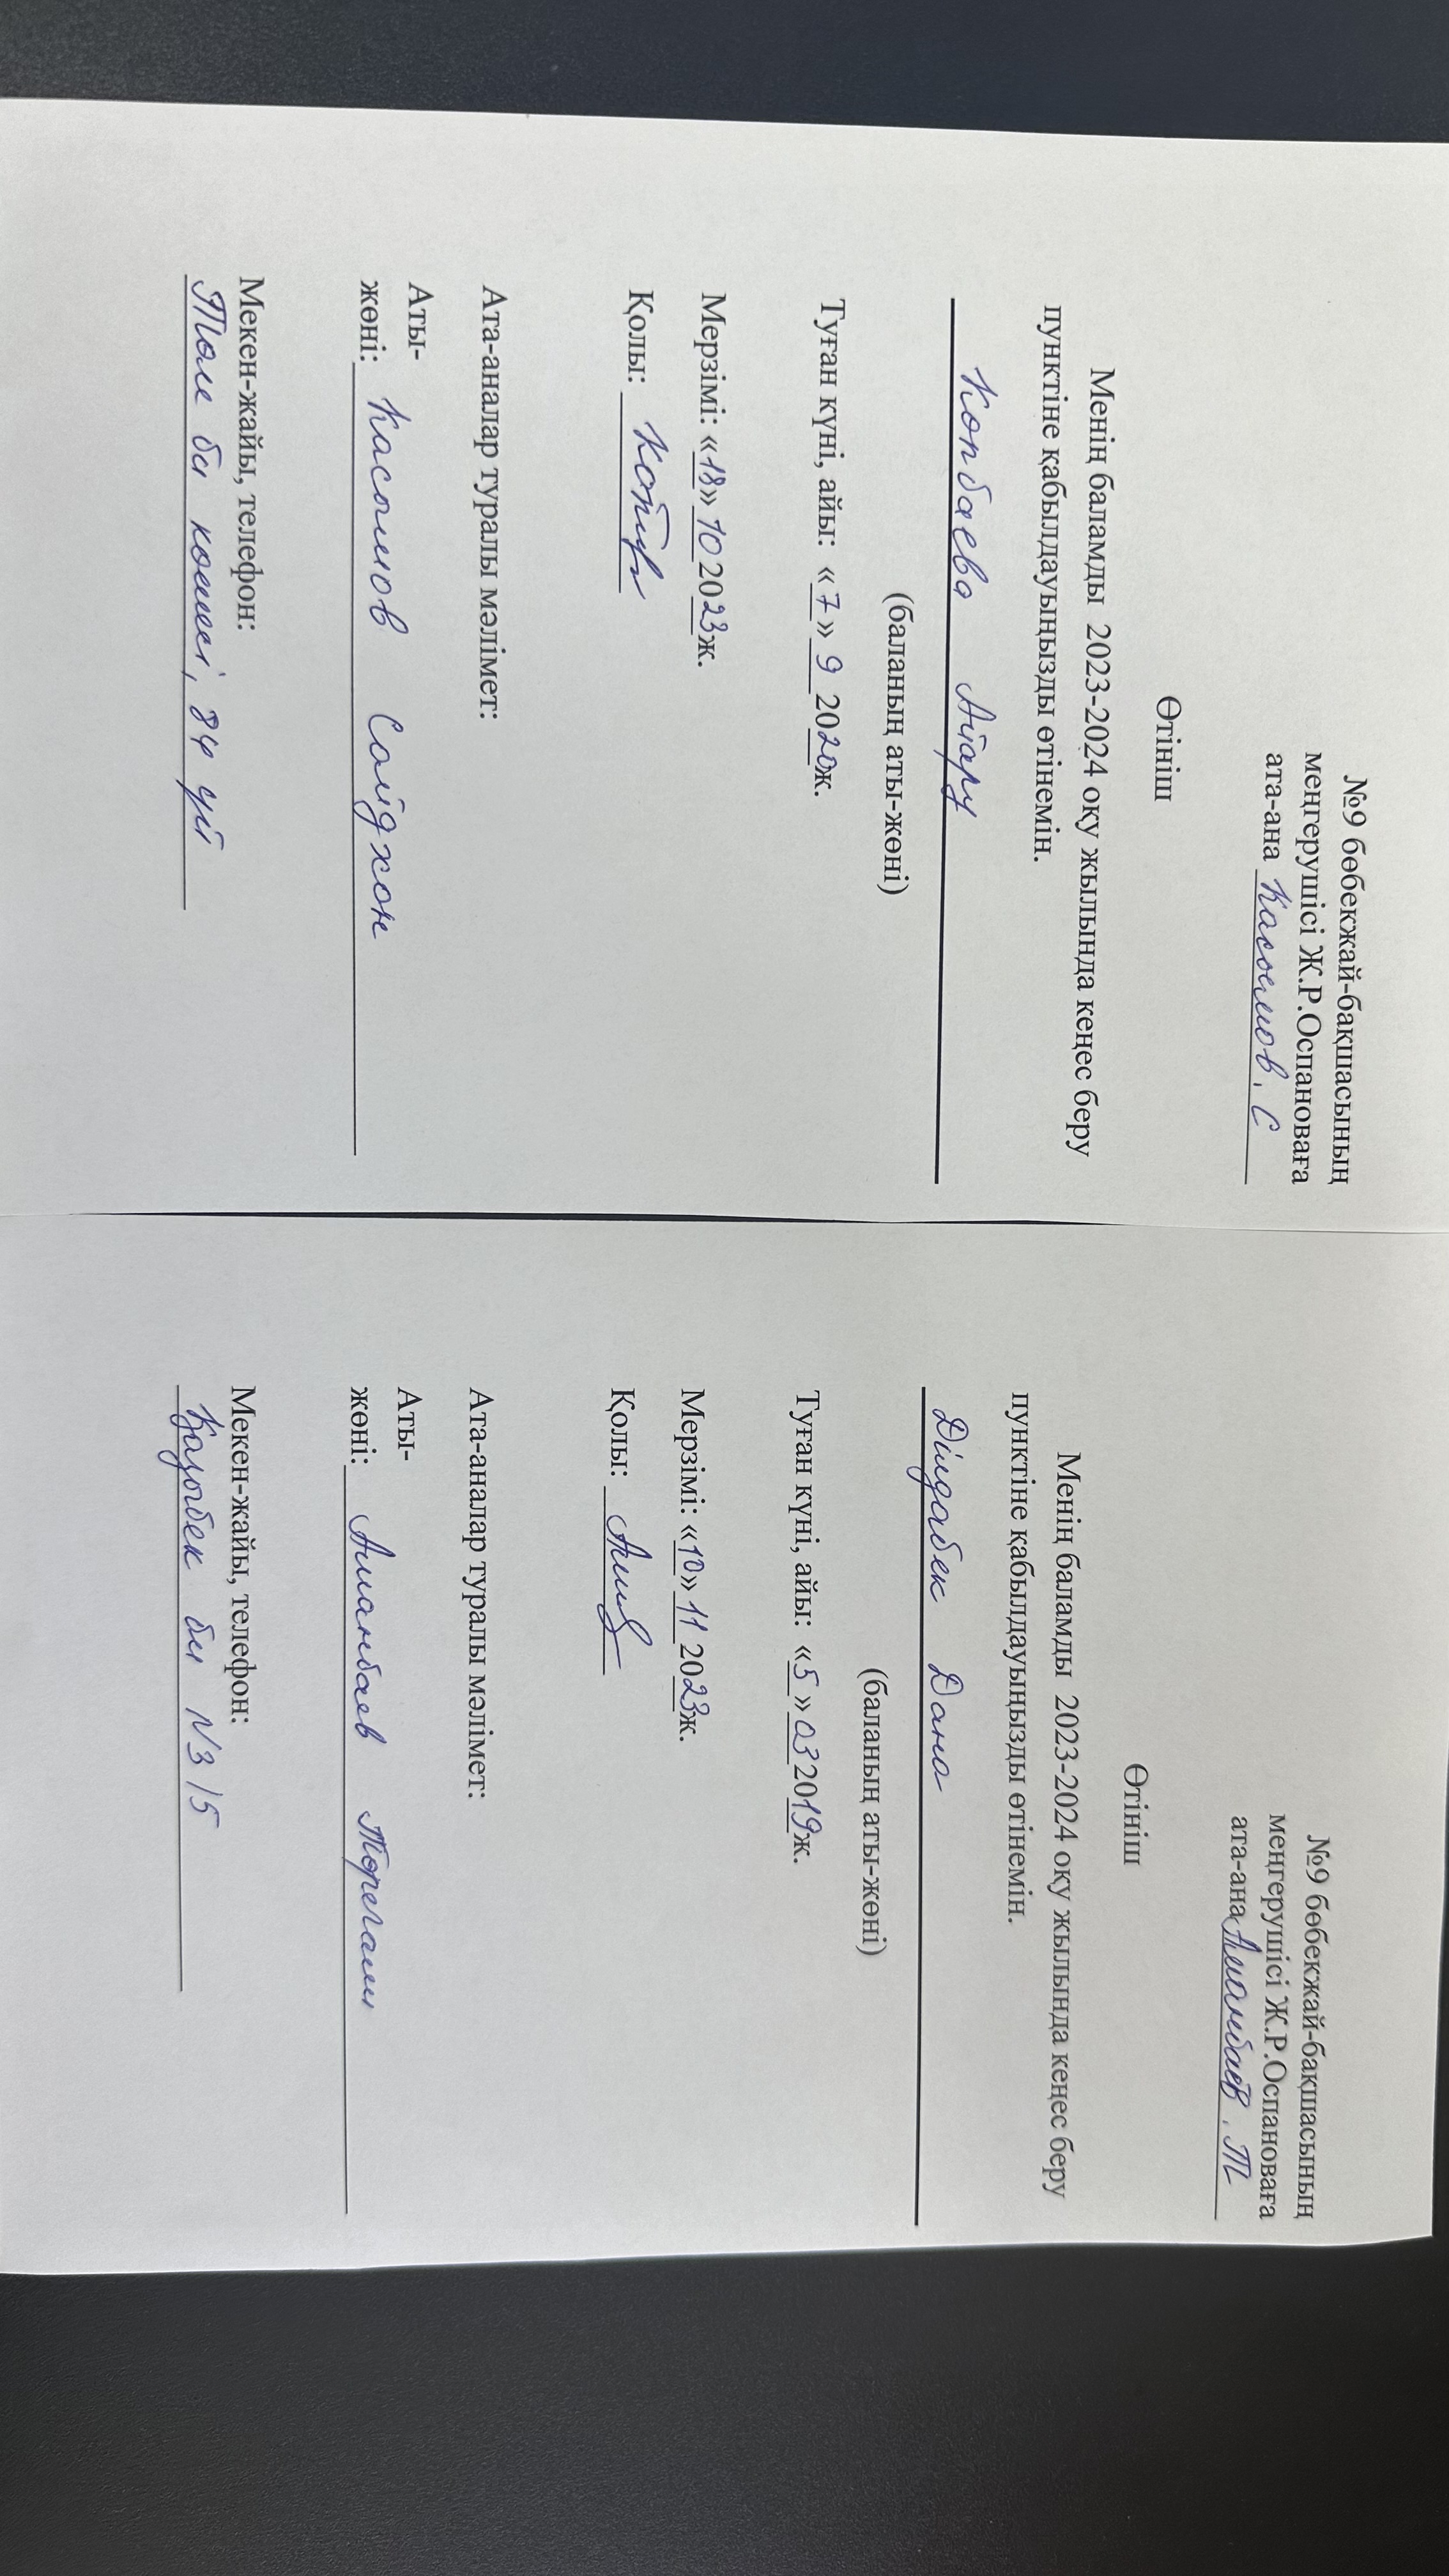 №9 бөбекжай-бақшасының
меңгерушісі Ж.Р.Оспановаға
ата-ана Касымов. С
Өтініш
Менің баламды 2023-2024 оқу жылында кеңес беру
пунктіне қабылдауыңызды өтінемін.
Копбаева Айару
(баланың аты-жөні)
Туған күні, айы: «7» 9 2020ж.
Мерзімі: «18» 10 2023ж.
Қолы:
Ата-аналар туралы мәлімет:
Аты-
жөні: Касымов Сайдхон
Мекен-жайы, телефон:
Толе би көшесі, 84 үй
№9 бөбекжай-бақшасының
меңгерушісі Ж.Р.Оспановаға
ата-ана Аманбаев. Т
Өтініш
Менің баламды 2023-2024 оқу жылында кеңес беру
пунктіне қабылдауыңызды өтінемін.
Ділдабек Дана
(баланың аты-жөні)
Туған күні, айы: «5» 03 2019ж.
Мерзімі: «10» 11 2023ж.
Қолы:
Ата-аналар туралы мәлімет:
Аты-
жөні: Аманбаев
Мекен-жайы, телефон:
Қазыбек би №315